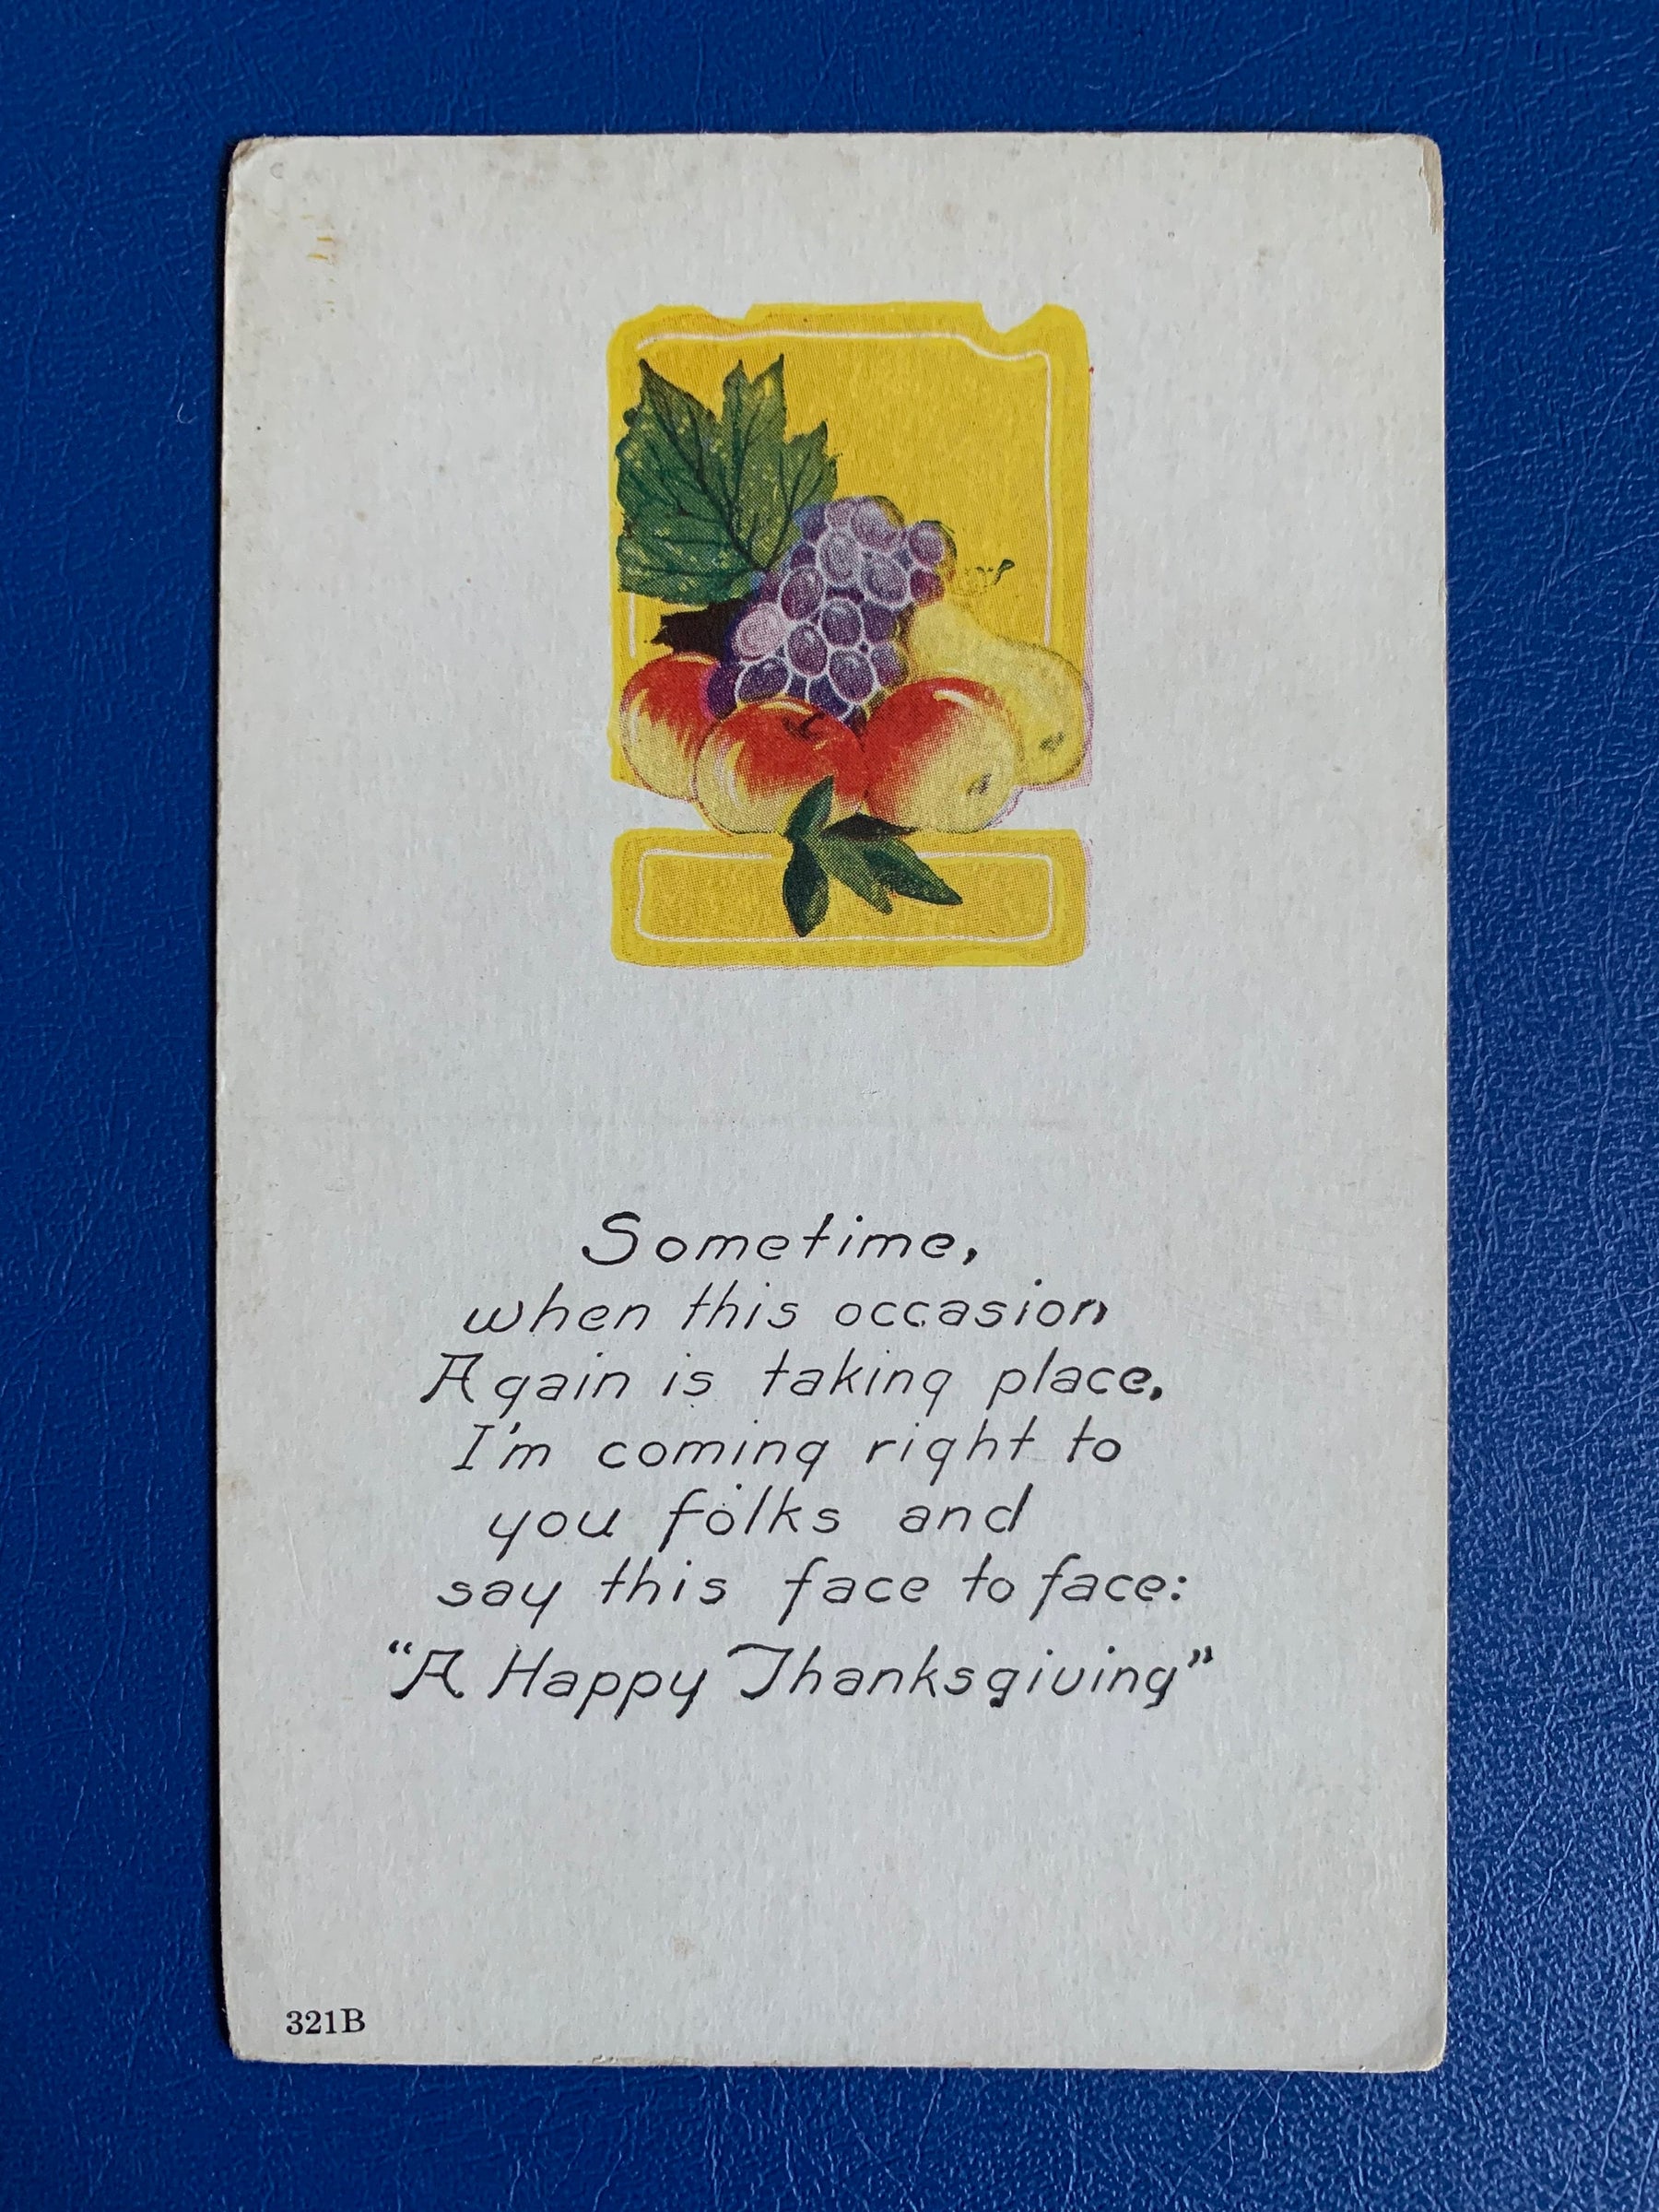 Sometime,
when this occasion
Again is taking place,
I'm coming right to
you folks and
say this face to face:
“A Happy Thanksgiving”
321B